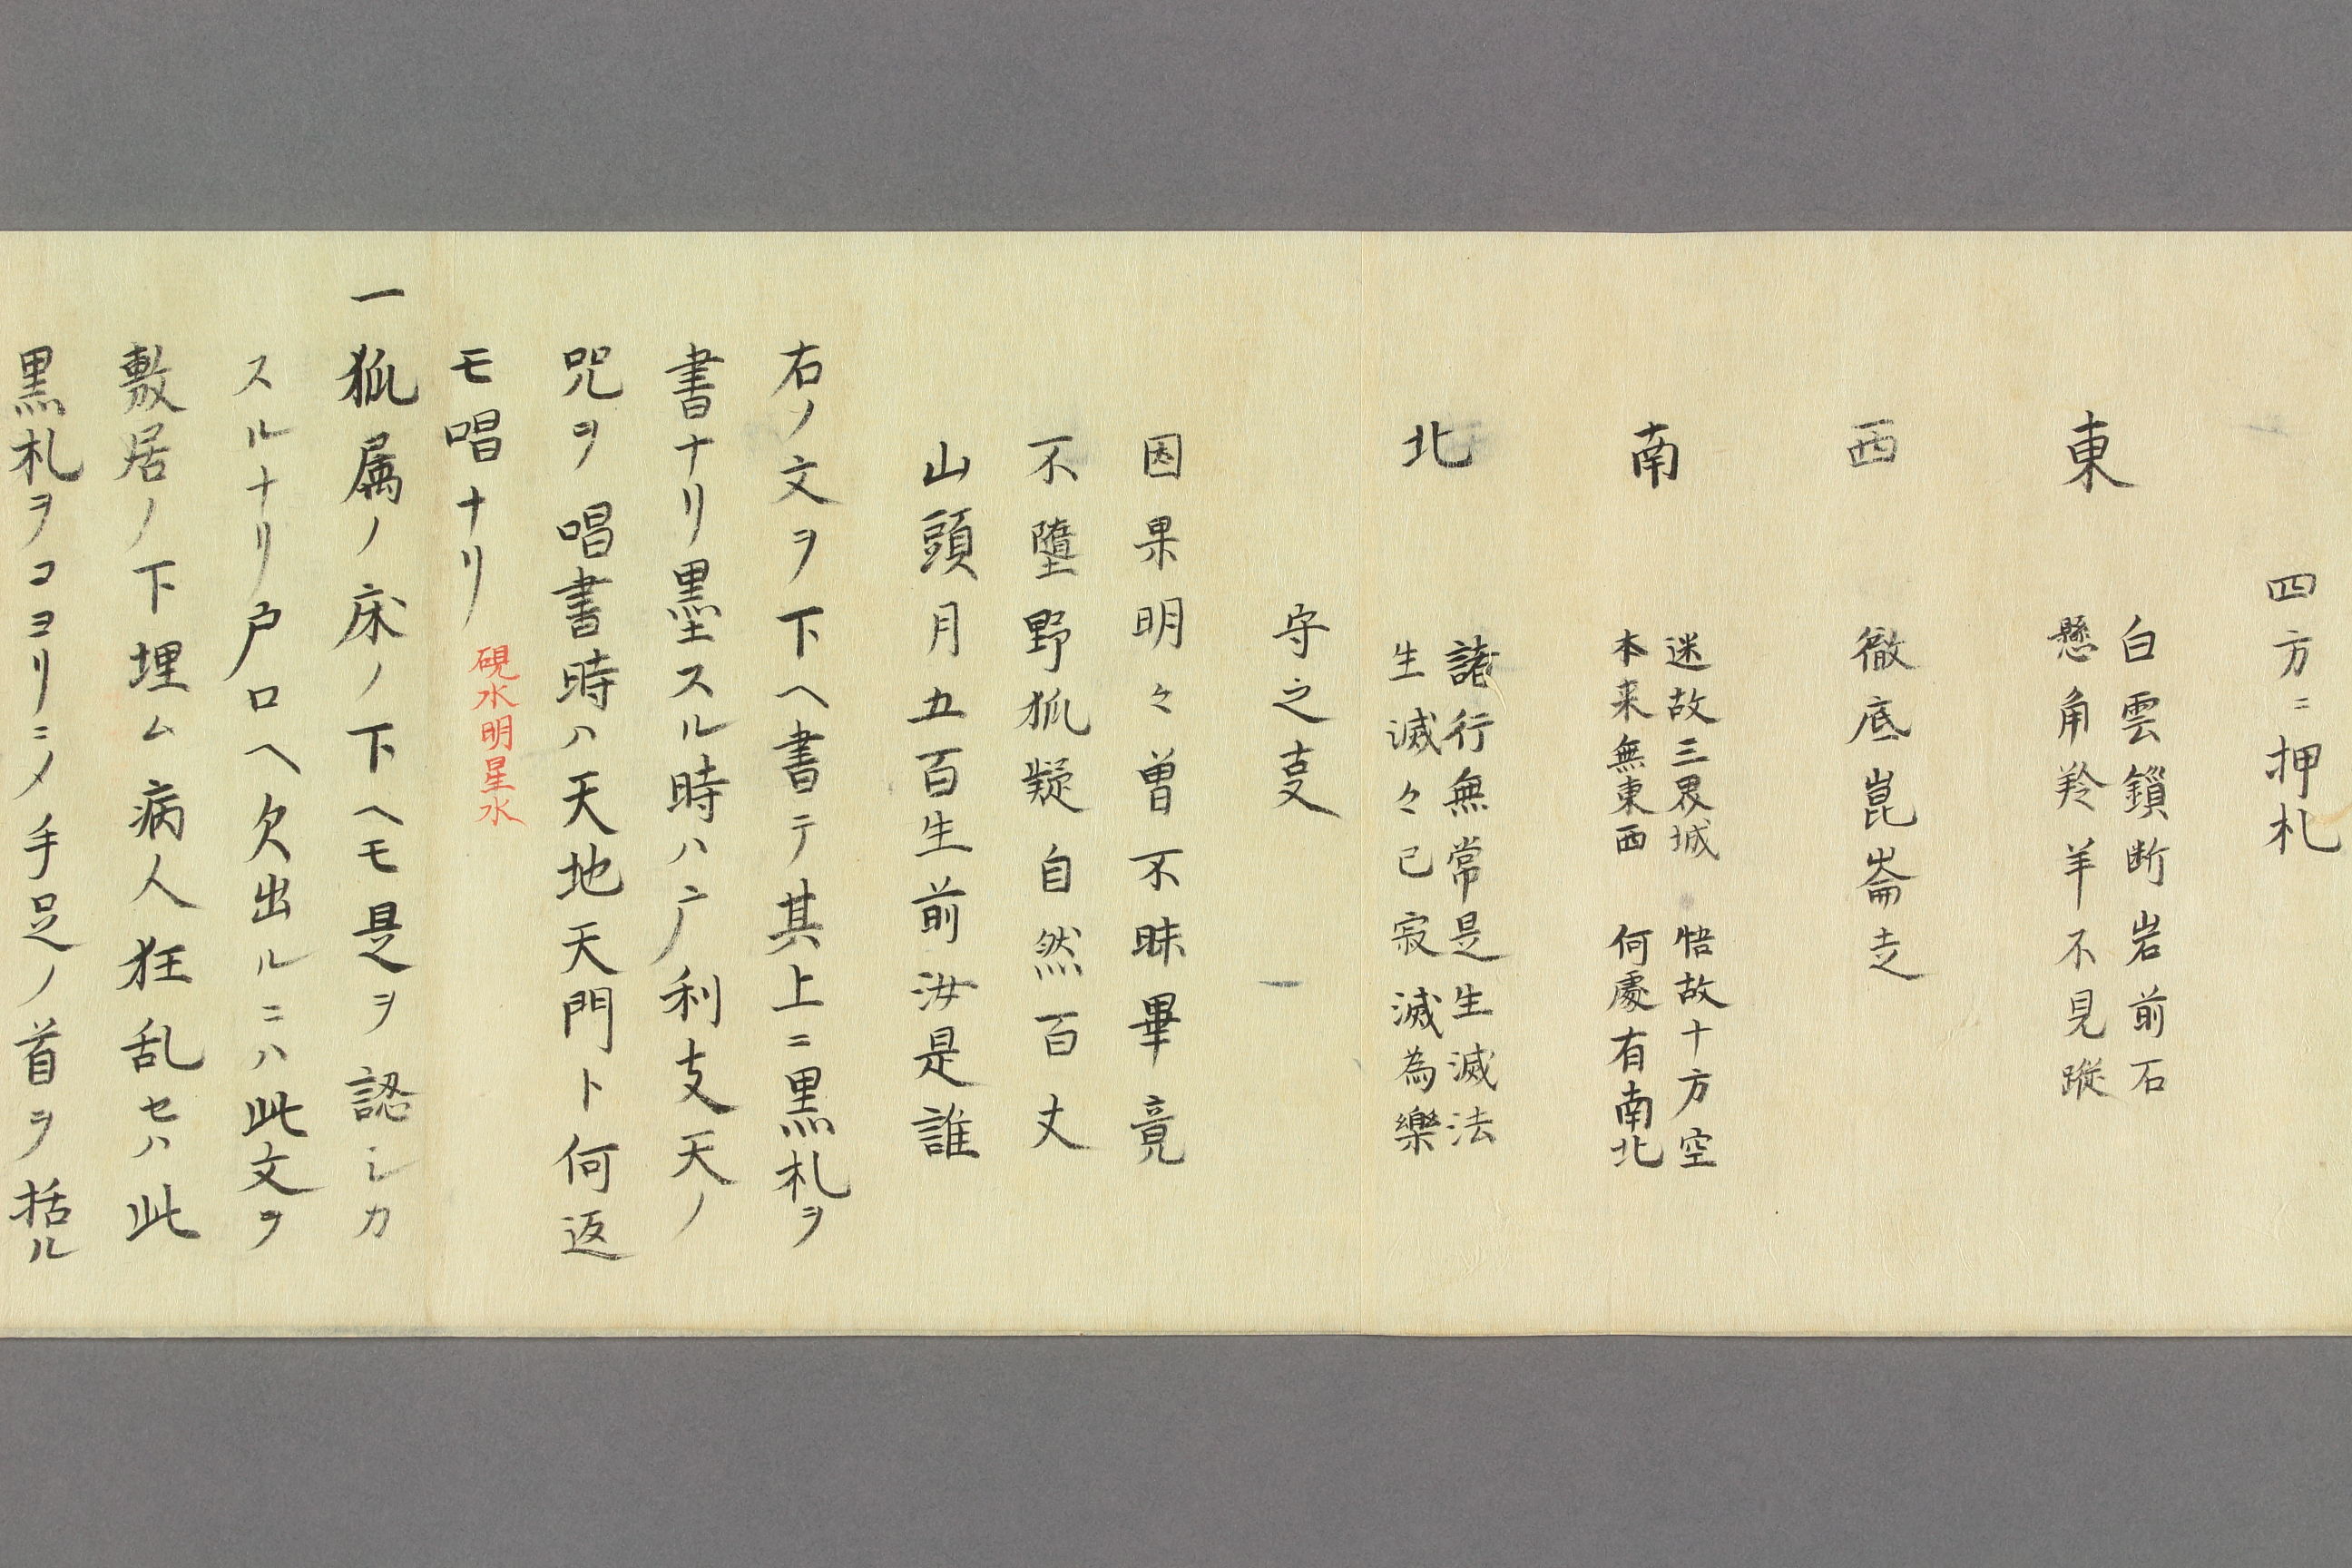 四方ニ押札
東
白雲鎖断岩前石
懸角羚羊不見蹤
西
徹底崑崙走
南
迷故三界城 悟故十方空
本来無東西 何處有南北
北
諸行無常是生滅法
生滅々已寂滅為樂
守之叓
因果明々曽不昧畢竟
不墮野狐疑自然百丈
山頭月五百生前汝是誰
右ノ文ヲ下ヘ書テ其上ニ黒札ヲ
書ナリ墨スル時ハ广利支天ノ
咒ヲ唱書時ハ天地天門ト何返
モ唱ナリ
硯水明星水
一狐属ノ床ノ下ヘモ是ヲ認シカ
スルナリ戸口ヘ欠出ルニハ此文ヲ
敷居ノ下埋ム病人狂乱セハ此
黒札ヲコヨリニノ手足ノ首ヲ括ル